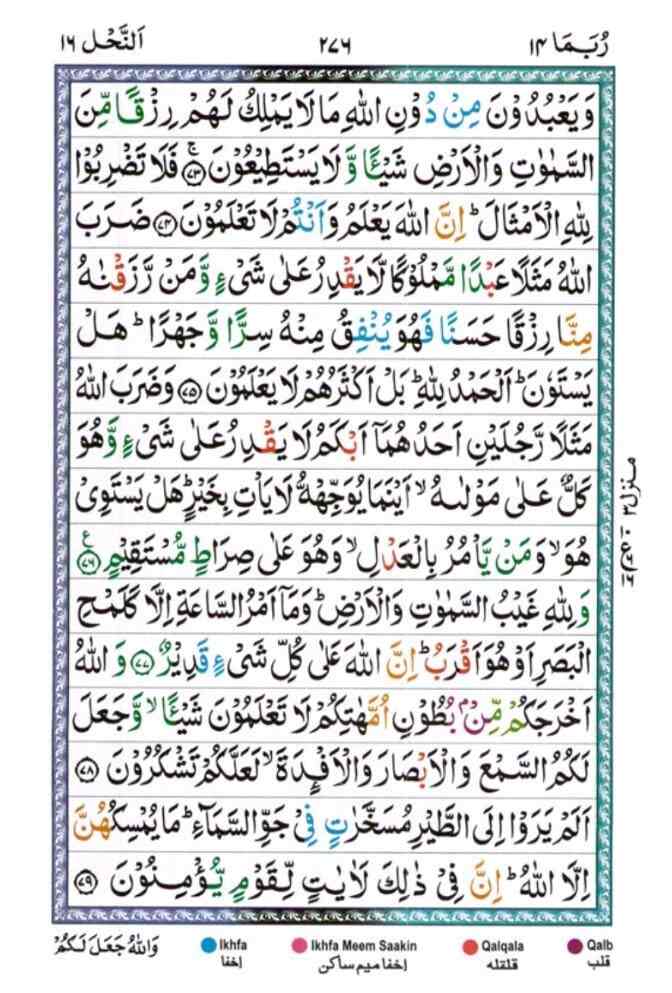 رُبَمَا ١٤
٢٧٦
اَلنَّحْل ١٦
وَيَعْبُدُوْنَ مِنْ دُوْنِ اللّٰهِ مَا لَا يَمْلِكُ لَهُمْ رِزْقًا مِّنَ
السَّمٰوٰتِ وَالْاَرْضِ شَيْـًٔا وَّ لَا يَسْتَطِيْعُوْنَ ۚ ﴿٧٣﴾ فَلَا تَضْرِبُوْا
لِلّٰهِ الْاَمْثَالَ ؕ اِنَّ اللّٰهَ يَعْلَمُ وَاَنْتُمْ لَا تَعْلَمُوْنَ ﴿٧٤﴾ ضَرَبَ
اللّٰهُ مَثَلًا عَبْدًا مَّمْلُوْكًا لَّا يَقْدِرُ عَلٰى شَىْءٍ وَّمَنْ رَّزَقْنٰهُ
مِنَّا رِزْقًا حَسَنًا فَهُوَ يُنْفِقُ مِنْهُ سِرًّا وَّجَهْرًا ؕ هَلْ
يَسْتَوٗنَ ؕ اَلْحَمْدُ لِلّٰهِ ؕ بَلْ اَكْثَرُهُمْ لَا يَعْلَمُوْنَ ﴿٧٥﴾ وَضَرَبَ اللّٰهُ
مَثَلًا رَّجُلَيْنِ اَحَدُهُمَاۤ اَبْكَمُ لَا يَقْدِرُ عَلٰى شَىْءٍ وَّهُوَ
كَلٌّ عَلٰى مَوْلٰىهُ ۙ اَيْنَمَا يُوَجِّهْهُّ لَا يَاْتِ بِخَيْرٍ ؕ هَلْ يَسْتَوِىْ
هُوَ ۙ وَمَنْ يَّاْمُرُ بِالْعَدْلِ ۙ وَهُوَ عَلٰى صِرَاطٍ مُّسْتَقِيْمٍ ﴿٧٦﴾ ع
وَلِلّٰهِ غَيْبُ السَّمٰوٰتِ وَالْاَرْضِ ؕ وَمَاۤ اَمْرُ السَّاعَةِ اِلَّا كَلَمْحِ
الْبَصَرِ اَوْ هُوَ اَقْرَبُ ؕ اِنَّ اللّٰهَ عَلٰى كُلِّ شَىْءٍ قَدِيْرٌ ﴿٧٧﴾ وَ اللّٰهُ
اَخْرَجَكُمْ مِّنْۢ بُطُوْنِ اُمَّهٰتِكُمْ لَا تَعْلَمُوْنَ شَيْـًٔا ۙ وَّجَعَلَ
لَكُمُ السَّمْعَ وَالْاَبْصَارَ وَالْاَفْـِٕدَةَ ۙ لَعَلَّكُمْ تَشْكُرُوْنَ ﴿٧٨﴾
اَلَمْ يَرَوْا اِلَى الطَّيْرِ مُسَخَّرٰتٍ فِىْ جَوِّ السَّمَآءِ ؕ مَا يُمْسِكُهُنَّ
اِلَّا اللّٰهُ ؕ اِنَّ فِىْ ذٰلِكَ لَاٰيٰتٍ لِّقَوْمٍ يُّؤْمِنُوْنَ ﴿٧٩﴾
منزل ٣
وَاللّٰهُ جَعَلَ لَكُمْ
Ikhfa
اِخفا
Ikhfa Meem Saakin
اِخفا میم ساکن
Qalqala
قلقلہ
Qalb
قلب